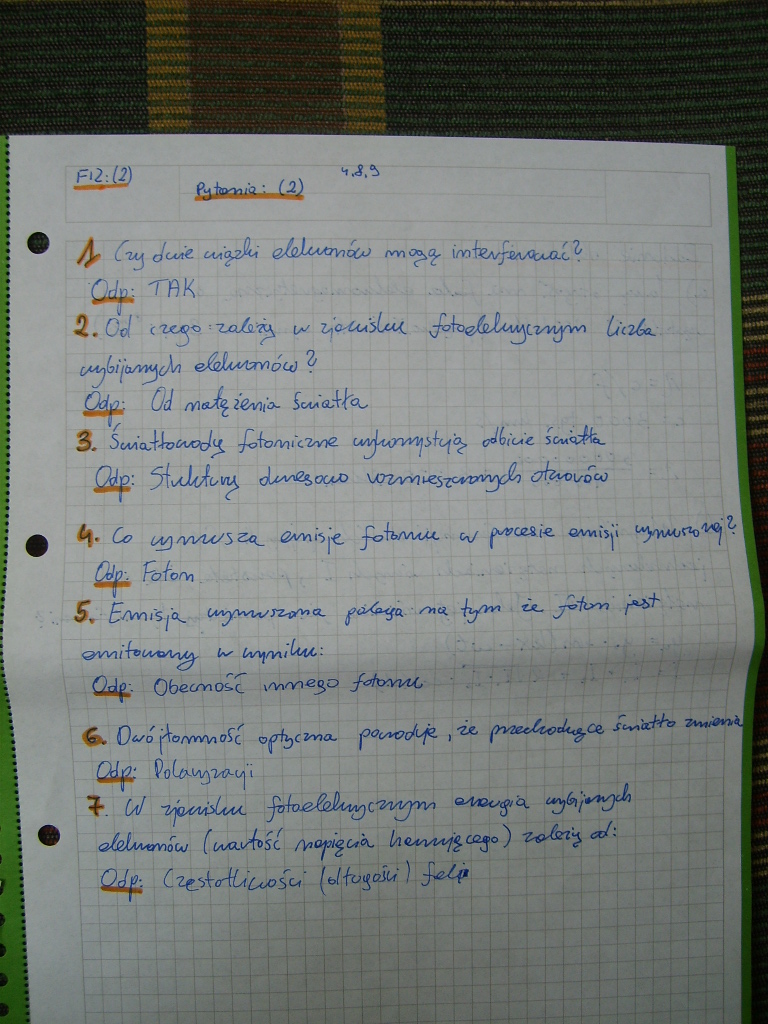 FIZ:(2)
Pytania: (2)
4,8,9
1 Czy dwie wiązki elektronów mogą interferować?
Odp: TAK
2. Od czego zależy w zjawisku fotoelektrycznym liczba
wybijanych elektronów?
Odp: Od natężenia światła
3. Światłowody fotoniczne wykorzystują odbicie światła
Odp: Struktury okresowo rozmieszczonych otworów
4. Co wymusza emisje fotonu w procesie emisji wymuszonej?
Odp: Foton
5. Emisja wymuszona polega na tym że foton jest
emitowany w wyniku:
Odp: Obecność innego fotonu
6. Dwójłomność optyczna powoduje, że przechodzące światło zmienia
Odp: Polaryzacji
7. W zjawisku fotoelektrycznym energia wybijanych
elektronów (wartość napięcia hamującego) zależy od:
Odp: Częstotliwości (długości) fali